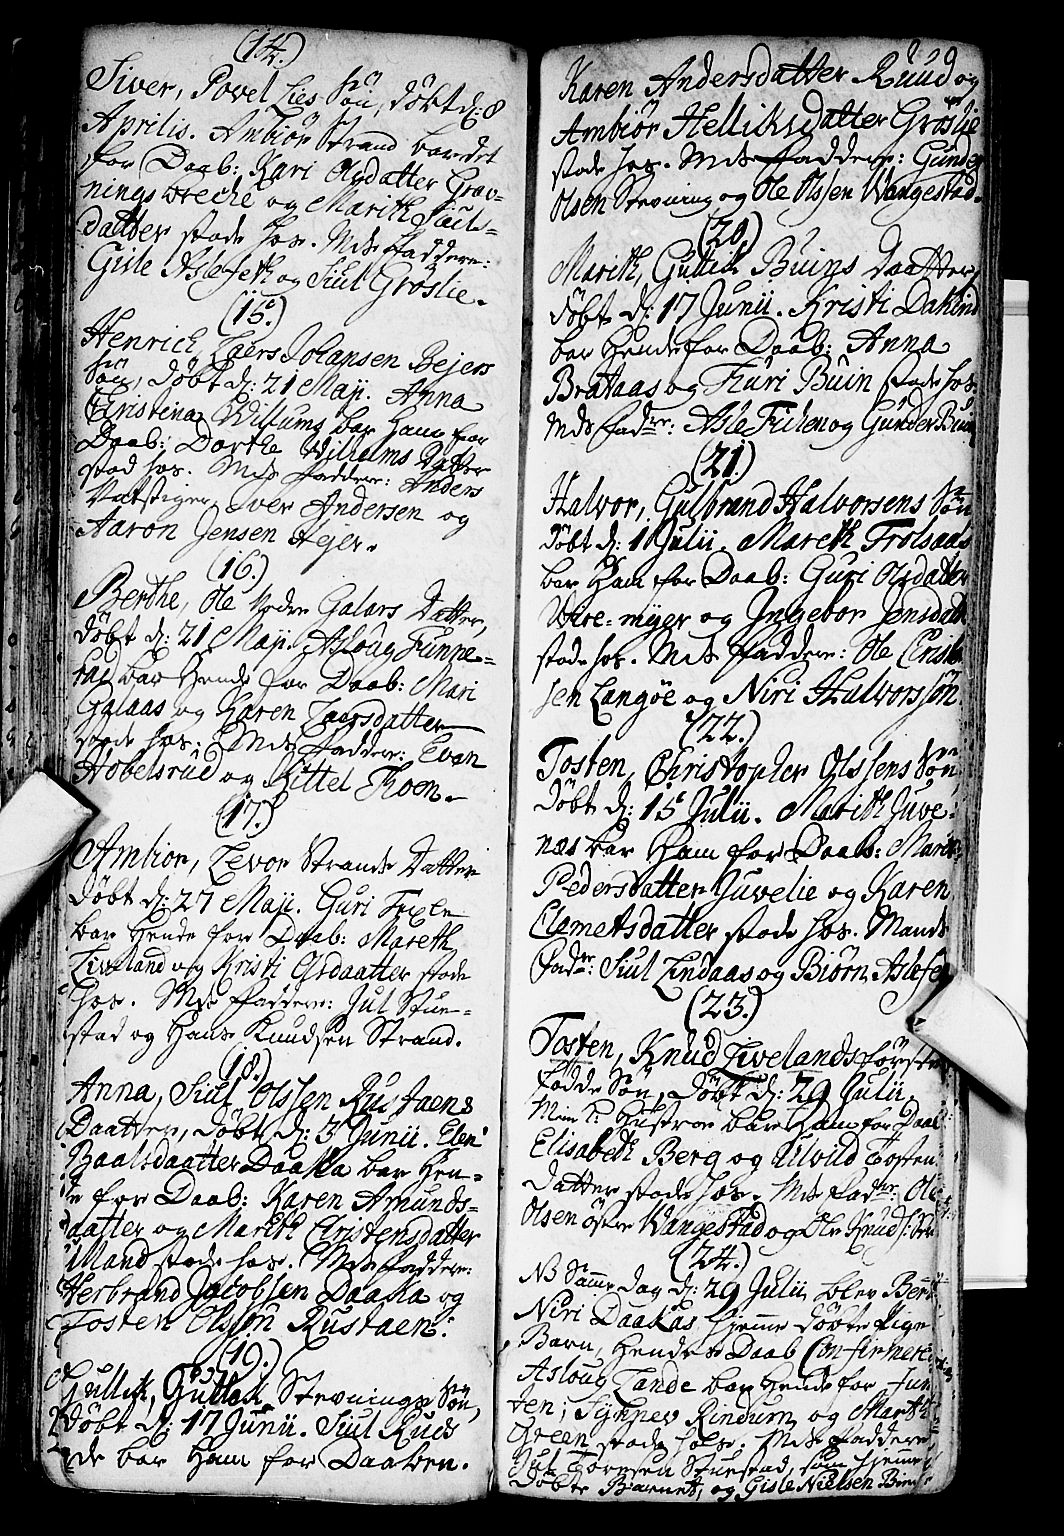 (14.)
Siver, Povel Lies Søn, døbt d: 8
Aprilis. Ambiør Strand bar det
for Daab: Kari Olsdatter Grav-
nings og Marith Siuls-
datter stode hos. Mds Faddere:
Gisle Aslefeth og Siul Groslie.
(15.)
Henrich Laers Johansen Bejers
Søn, døbt d: 21 Maji. Anna
Christina Willums bar ham for
Daab: Dorthe Wilhelms Datter
stod hos. Mds Faddere: Anders
Iver Andersen og
Aaron Jensen Hejer.
(16.)
Berthe, Ole Galaas Datter,
døbt d: 21 Maji. Asloug Funne-
rud bar Hende for Daab: Mari
Galaas og Karen Laersdatter
stode hos: Mds Faddere: Even
Hobelsrud og Kittel Thoen.
(17.)
Ambior, Levor Strands Datter
døbt d: 27 Maji. Guri
bar Hende for Daab: Mareth
Liveland og Kristi Olsdaatter stode
hos. Mds Faddere: Jul Stue-
stad og Hans Knudsen Strand.
(18.)
Anna, Siul Olssen Rustaens
Daatter, døbt d: 3 Junii. Elen
Baalsdaatter Daaka bar Hen-
de for Daab: Karen Amunds-
daatter og Marith Christensdatter
Mand stode hos. Mds Faddere:
Herbrand Jacobssen Daaka og
Tosten Olssøn Rustaen.
(19.)
Gullik, Gullik Stevnings Søn,
døbt d: 17 Junii. Siul Ruds
bar Ham for Daaben.
Karen Andersdatter Ruud og
Ambiør Helliksdatter Groslie
stode hos. Mds Faddere: Gunder
Olsen Stevning og Ole Olssen Wangestad.
(20.)
Marith, Gullik Buins Daatter,
døbt d: 17 Junii. Kristi
bar Hende for Daab: Anna
Brataas og Turi Buin stode hos
Mds Fadre: Asle og Gunder Buin
(21.)
Halvor, Gulbrand Halvorsens Søn,
døbt d: 1 Julii. Mareth Frolsaas
bar Ham for Daab: Guri Olsdatter
og Ingebor Jensdatt
stode hos. Mds Faddere: Ole
sen Langøe og Niri Halvorssøn
(22.)
Tosten, Christopher Olssens Søn,
døbt d: 15 Julii. Marith Juve-
næs bar Ham for Daab: Marit
Pedersdatter Juvelie og Karen
Clemetsdatter stode hos. Mands
Fadre: Siul Lindaas og Biørn Aslefet
(23.)
Tosten, Knud Livelands første
fødde Søn, døbt d: 29 Julii
Min Hustroe bar Ham for Daab:
Elisabeth Berg og Ulvild Tosten
datter stode hos. Mds Fadre: Ole
Olsen østre Wangestad og Ole Knuds:
(24.)
NB Samme dag d: 29 Julii blev
Niri Daakas hiemme døbte Pige
Barn, Hendes Daab Confirmeret
Asloug Lande bar Hende for Fun
ten; Rindum og Marit
Green stode hos. Mds Faddere,
Jul Stuestad, som hiemme
døbte Barnet, og Gisle Nielsen